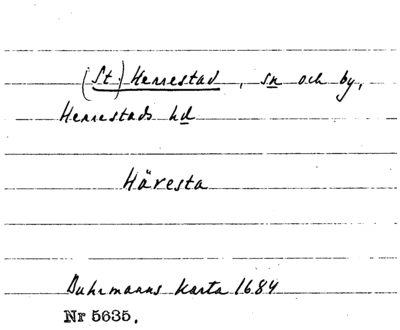 (St.) Herrestad, sn och by,
Herrestads hd
Häresta
Buhrmanns karta 1684
Nr 5635.